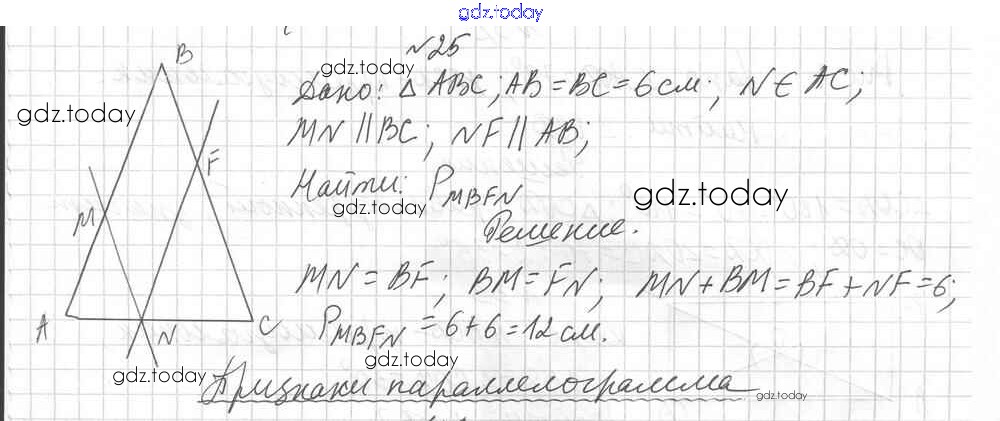 gdz.today
№25
gdz.today
Дано: △ ABC; AB = BC = 6 см; N ∈ AC;
gdz.today
MN || BC; NF || AB;
Найти: P MBFN
gdz.today
gdz.today
Решение.
MN = BF; BM = FN; MN + BM = BF + NF = 6;
P MBFN = 6 + 6 = 12 см.
gdz.today
gdz.today
Признаки параллелограмма
gdz.today
B
F
M
A
N
C